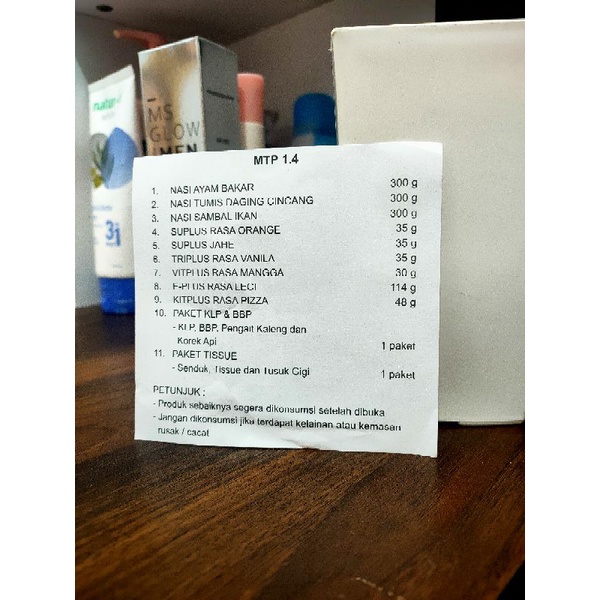 natur
3
in
1
MS
GLOW
MEN
MTP 1.4
1. NASI AYAM BAKAR 300 g
2. NASI TUMIS DAGING CINCANG 300 g
3. NASI SAMBAL IKAN 300 g
4. SUPLUS RASA ORANGE 35 g
5. SUPLUS JAHE 35 g
6. TRIPLUS RASA VANILA 35 g
7. VITPLUS RASA MANGGA 30 g
8. E-PLUS RASA LECI 114 g
9. KITPLUS RASA PIZZA 48 g
10. PAKET KLP & BBP
- KLP, BBP, Pengait Kaleng dan
Korek Api 1 paket
11. PAKET TISSUE
- Senduk, Tissue dan Tusuk Gigi 1 paket
PETUNJUK :
- Produk sebaiknya segera dikonsumsi setelah dibuka
- Jangan dikonsumsi jika terdapat kelainan atau kemasan
rusak / cacat